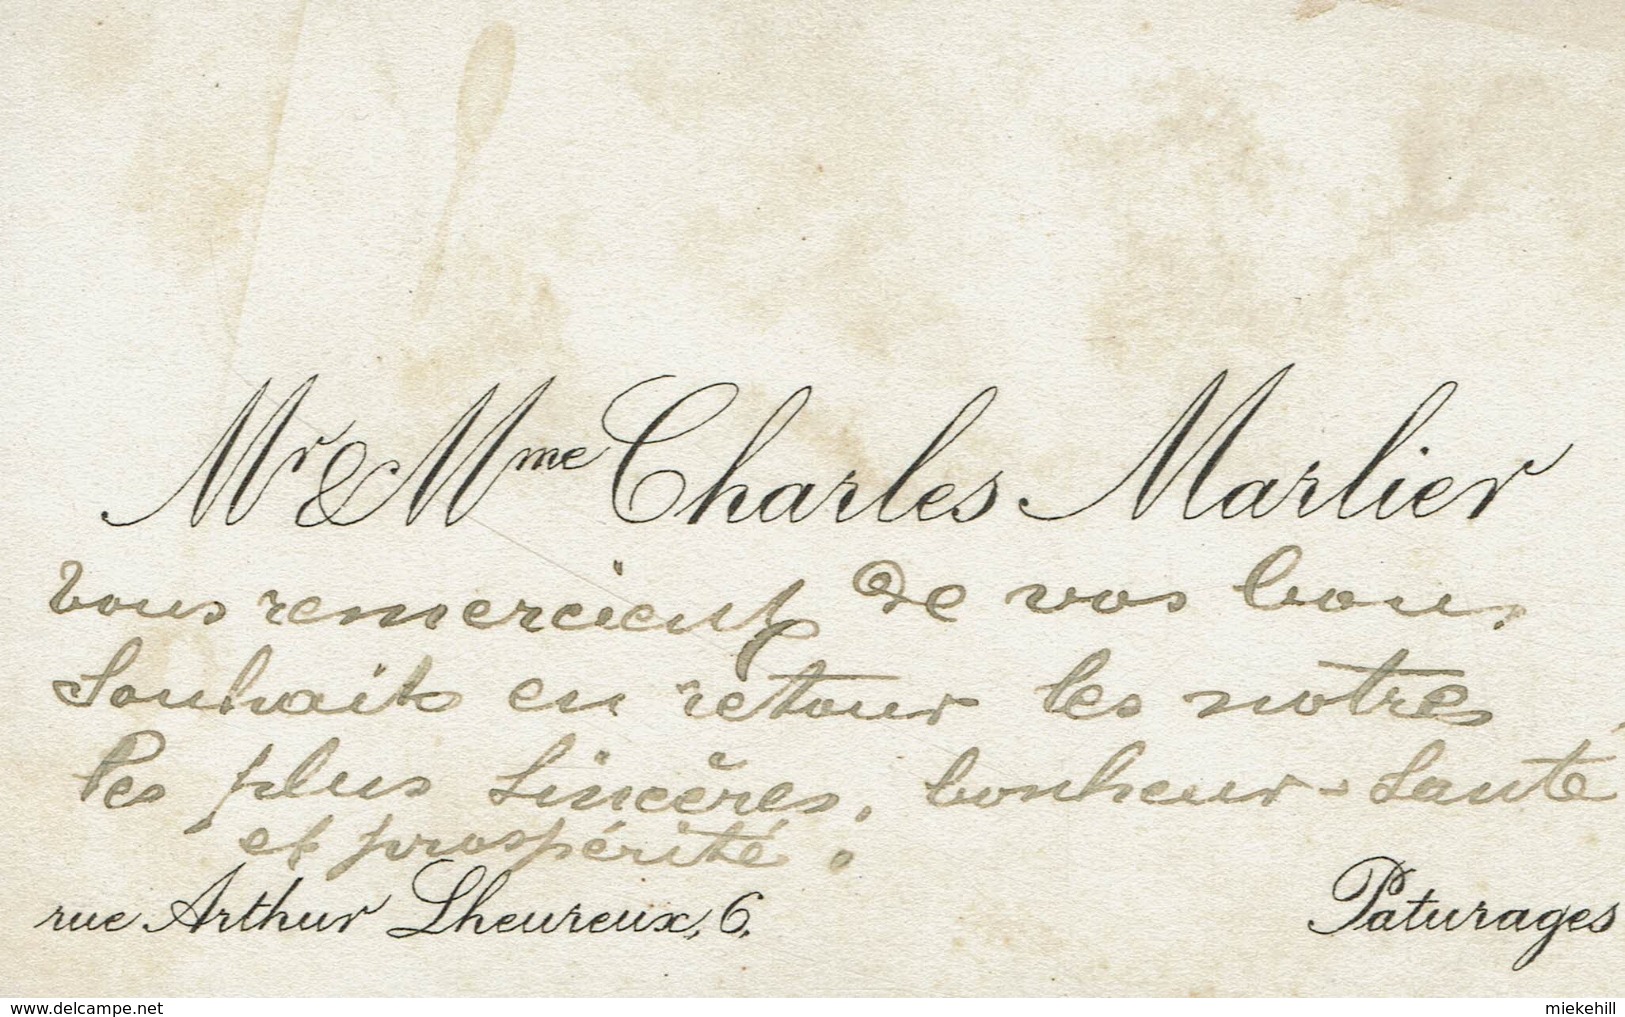 Mr & Mme Charles Marlier
vous remercient de vos bons
souhaits en retour les notres
les plus sincères, bonheur - santé
et prospérité.
rue Arthur Lheureux, 6. Paturages
www.delcampe.net miekehill